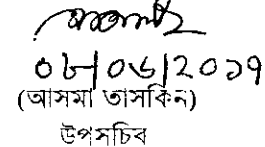 ০৮/০৬/২০১৭
(আসমা তাসকিন)
উপসচিব